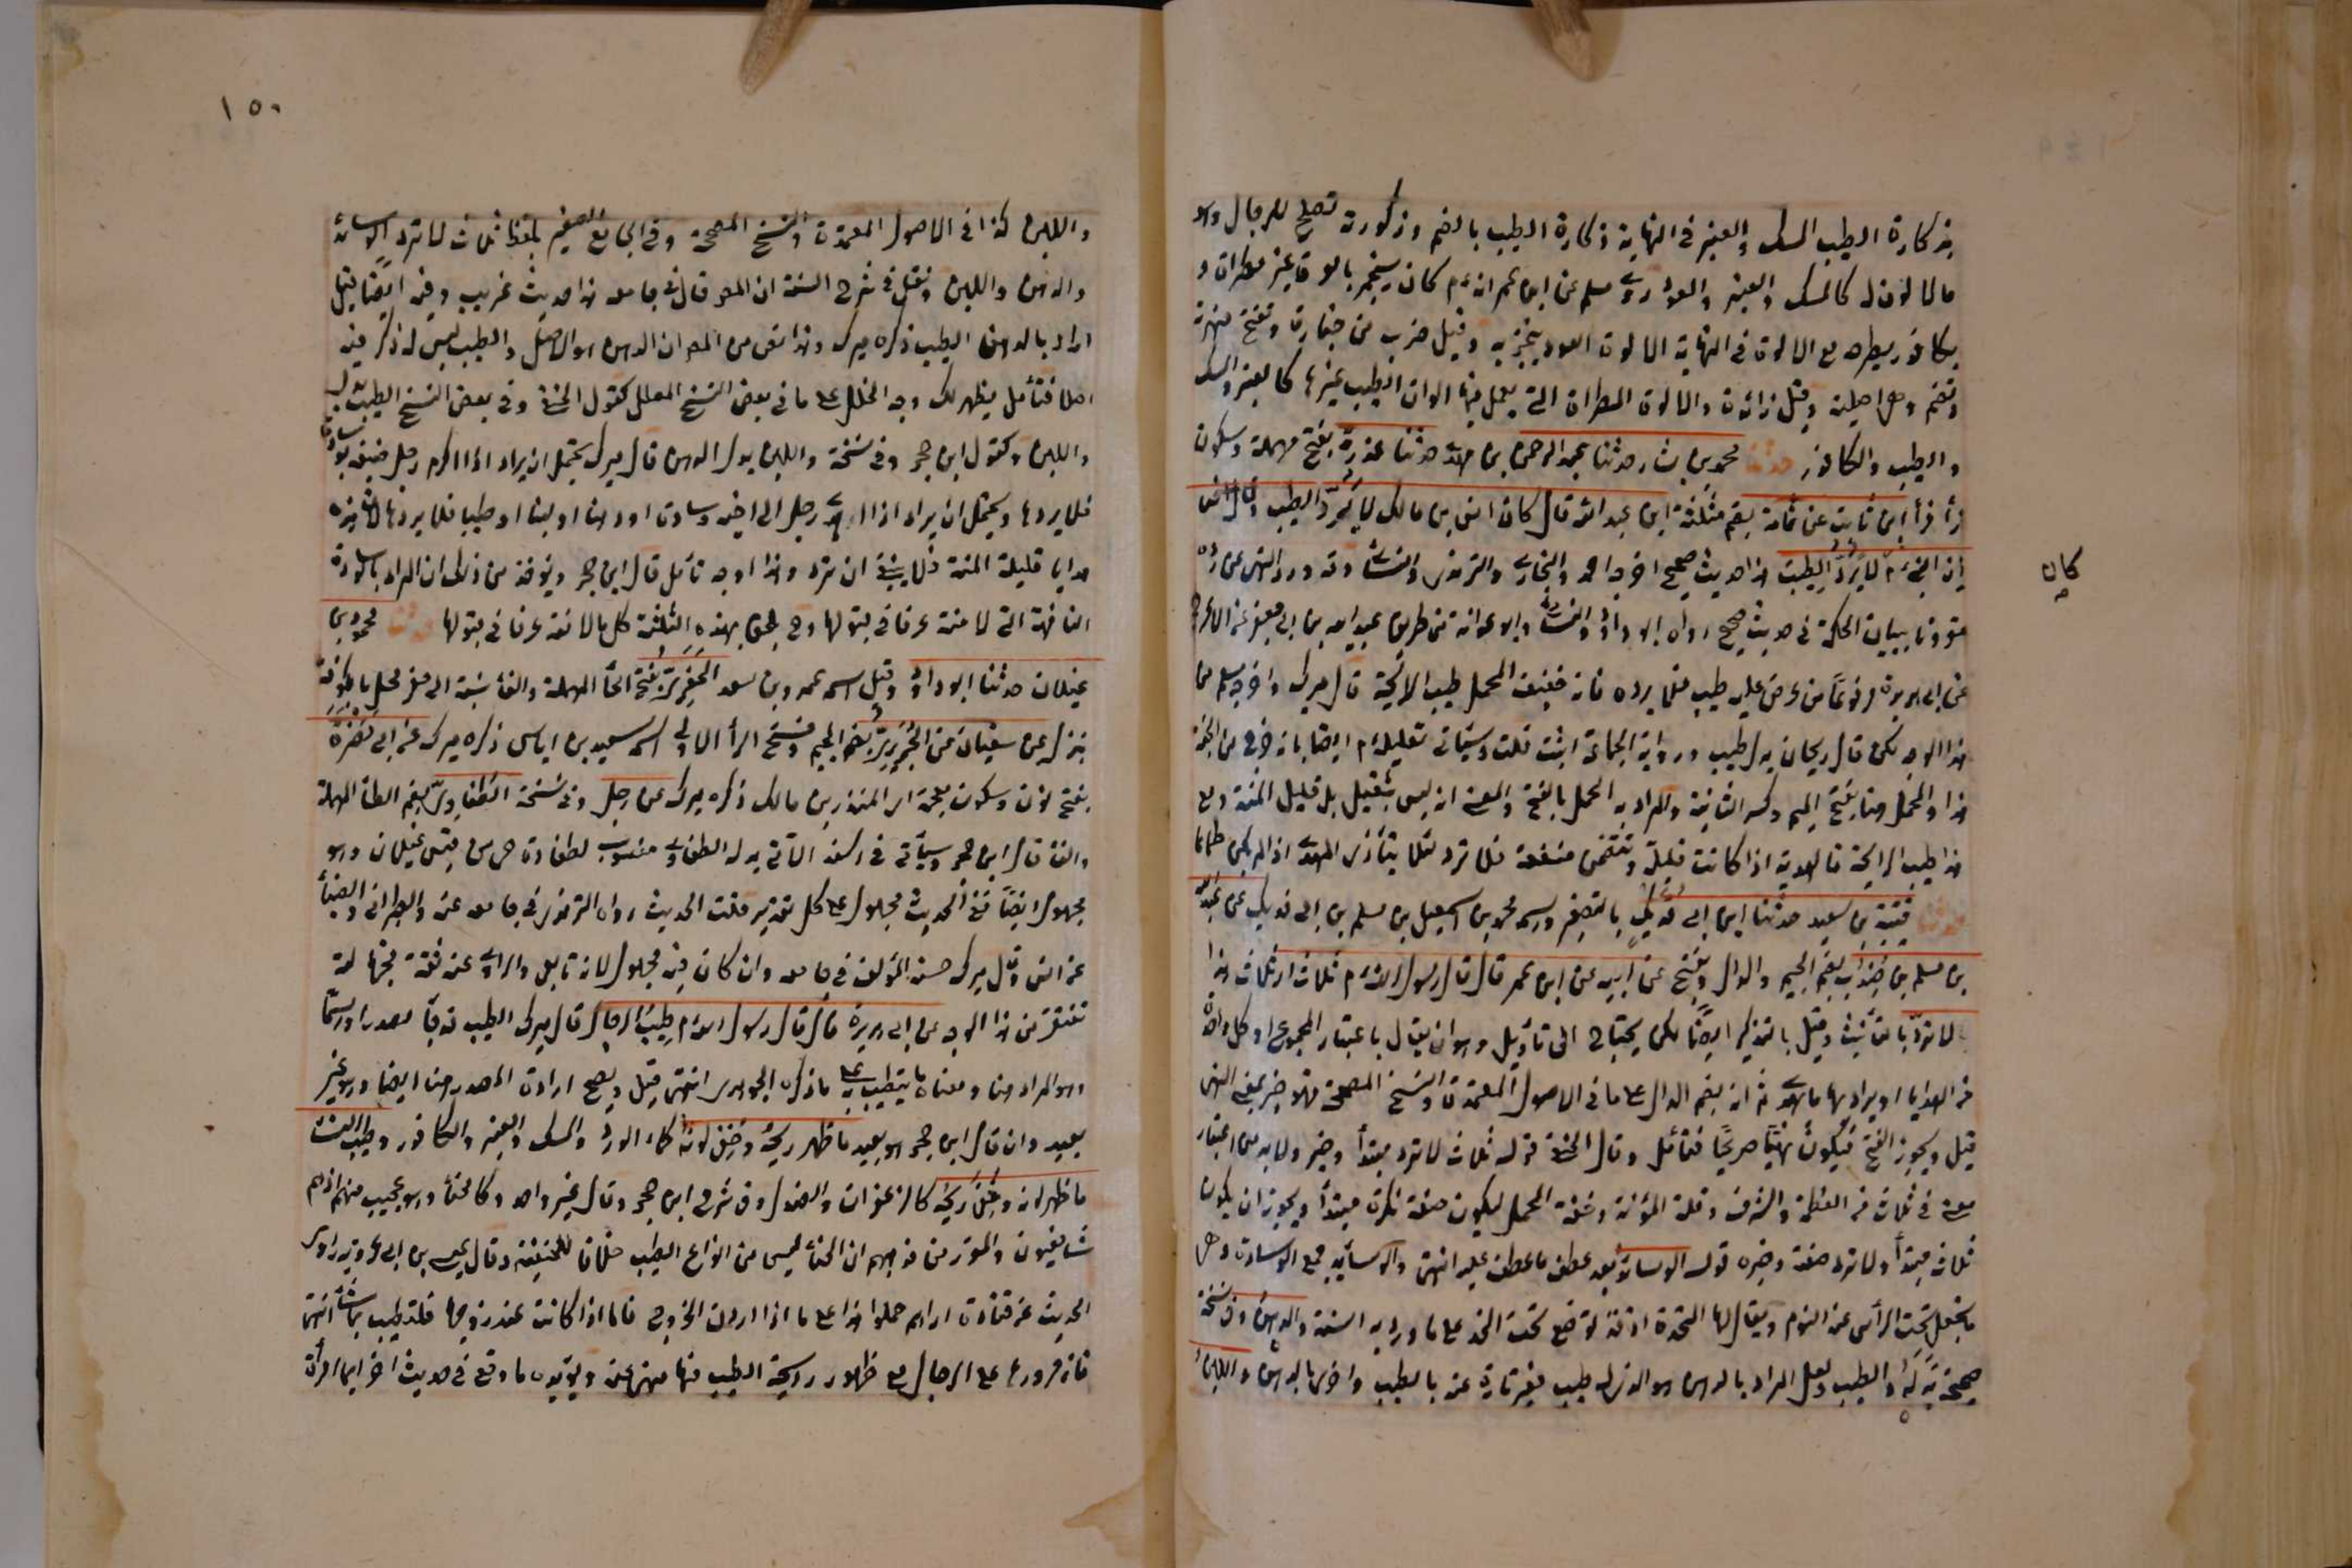 بذكارة الطيب المسك والعنبر في النهاية ذكارة الطيب بالضم وذكورته تصلح للرجال وهو
ما لا لون له كالمسك والعنبر والعود روى مسلم عن ابن عمر انه ءم كان يستجمر بالوة غير مطراة و
بكافور يطرحه مع الالوة في النهاية الالوة العود يتبخر به وقيل ضرب من خيارته وتفتح همزته
وتضم وهي اصلية وقيل زائدة والالوة المطراة التي يعمل فيها الوان الطيب غيرها كالعنبر والمسك
والطيب والكافور حدثنا محمد بن بشار حدثنا عبد الرحمن بن مهدي حدثنا عزرة بفتح مهملة وسكون
زأ فرأ ابن ثابت عن ثمامة بضم مثلثة ابن عبد الله قال كان انس بن مالك لا يردّ الطيب وقال انس
إن النبي ءم كان لا يردّ الطيب هذا حديث صحيح اخرجه احمد والبخاري والترمذي والنسائي وقد ورد النهي عن رده
مقرونا ببيان الحكمة في حديث صحيح رواه ابو داود والنسائي وابو عوانة من طريق عبيد الله بن ابي جعفر عن الاعرج
عن ابي هريرة مرفوعا من عرض عليه طيب فلا يرده فانه خفيف المحمل طيب الرائحة قال ميرك واخرجه مسلم من
هذا الوجه لكن قال ريحان بدل طيب ورواية الجماعة اثبت قلت وسيأتي تعليله ءم ايضا بانه خرج من الجنة
هذا والمحمل هنا بفتح الميم وكسر الثانية والمراد به الحمل بالفتح والمعنى انه ليس بثقيل بل قليل المنة ومع
هذا طيب الرائحة فالهدية اذا كانت قليلة وتتضمن منفعة فلا ترد لئلا يتأذى المهدي اذا لم يكن طماعا
حدثنا قتيبة بن سعيد حدثنا ابن ابي فديك بالتصغير واسمه محمد بن اسمعيل بن مسلم بن ابي فديك عن عبد الله
بن مسلم بن جندب بضم الجيم والدال ويفتح عن ابيه عن ابن عمر قال قال رسول الله ءم ثلاث اي ثلاث هدايا
لا تردّ بالتأنيث وقيل بالتذكير ايضا لكن يحتاج الى تأويل وهو ان يقال باعتبار المجموع او كل واحدة
من الهدايا او يراد بها ما يهدى ثم انه بضم الدال على ما في الاصول المعتمدة والنسخ المصححة فهو خبر بمعنى النهي
قيل ويجوز الفتح فيكون نهيا صريحا فتأمل وقال الحنفي قوله ثلاث لا ترد مبتدأ وخبر ولا بد من اعتبار
معنى في ثلاث من العظمة والشرف وقلة المؤنة وخفة المحمل ليكون صفة نكرة مبتدأ ويجوز ان يكون
ثلاث مبتدأ ولا ترد صفة وخبره قوله الوسائد بعد عطف ما عطف عليه انتهى والوسائد جمع الوسادة وهي
ما يجعل تحت الرأس عند النوم ويقال لها المخدة ايضا لوضع تحت الخد على ما ورد به السنة والدهن وفي نسخة
صحيحة بدله والطيب ولعل المراد بالدهن هو الذي له طيب فعبر تارة عنه بالطيب واخرى بالدهن واللبن
كان
١٥٠
واللبن كذا في الاصول المعتمدة والنسخ المصححة وفي الجامع الصغير بلفظ ثلاث لا ترد الوسائد
والدهن واللبن ونقل في شرح السنة ان المص قال في جامعه هذا حديث غريب وفيه ايضا قيل
اراد بالدهن الطيب ذكره ميرك وهذا نص من المص ان الدهن هو الاصل والطيب ليس له ذكر فيه
اصلا فتأمل يظهر لك وجه الخلل على ما في بعض النسخ المعلل كقول الحنفي وفي بعض النسخ الطيب بدل
واللبن وكقول ابن حجر وفي نسخة واللبن بدل الدهن قال ميرك يحتمل ان يراد اذا اكرم رجل ضيفه بوسادة
فلا يردها ويحتمل ان يراد اذا اهدى رجل الى اخيه وسادة او دهنا او لبنا او طيبا فلا يردها لان هذه
هدايا قليلة المنة فلا ينبغي ان ترد وهذا اوجه تأمل قال ابن حجر ويؤخذ من ذلك ان المراد بالوسادة
التافهة التي لا منة عرفا في قبولها وح يلحق بهذه الثلثة كل ما لا منة عرفا في قبولها حدثنا محمود بن
غيلان حدثنا ابو داود وقيل اسمه عمر بن سعد الحفري بفتح الحأ المهملة والفأ نسبة الى حفر محل بالكوفة
ينزل عن سفيان عن الجريري بضم الجيم وفتح الرأ الاولى اسمه سعيد بن اياس ذكره ميرك عن ابي نضرة
بفتح نون وسكون معجمة اسمه المنذر بن مالك ذكره ميرك عن رجل وفي نسخة الطفاوي بضم الطأ المهملة
والفأ قال ابن حجر وسيأتي في السند الآتي بدله الطفاوي منسوب لطفاوة حي من قيس غيلان وهو
مجهول ايضا ففي الحديث مجهول على كل تقدير قلت الحديث رواه الترمذي في جامعه عنه والطبراني والضيأ
عن انس وقال ميرك حسنه المؤلف في جامعه وان كان فيه مجهول لانه تابعي والراوي عنه ثقة فجهالته
تغتفر من هذا الوجه عن ابي هريرة قال قال رسول الله ءم طيب الرجال قال ميرك الطيب قد جأ مصدرا واسما
وهو المراد هنا ومعناه ما يتطيب به على ما ذكره الجوهري انتهى قيل ويصح ارادة المصدر هنا ايضا وهو غير
بعيد وان قال ابن حجر هو بعيد ما ظهر ريحه وخفي لونه كماء الورد والمسك والعنبر والكافور وطيب النسأ
ما ظهر لونه وخفي ريحه كالزعفران والصندل وفي شرح ابن حجر وقال غير واحد وكالحنأ وهو عجيب منهم اذ هم
شافعيون والمقرر من مذهبهم ان الحنأ ليس من انواع الطيب خلافا للحنيفة وقال عيسى بن ابي عروبة راوي
الحديث عن قتادة اراهم حملوا هذا على ما اذا ارادت الخروج فاما اذا كانت عند زوجها فلتطيب بما شأت انتهى
فان مرورها على الرجال مع ظهور رائحة الطيب منها منهي عنه ويؤيده ما وقع في حديث اخر ايما امرأة